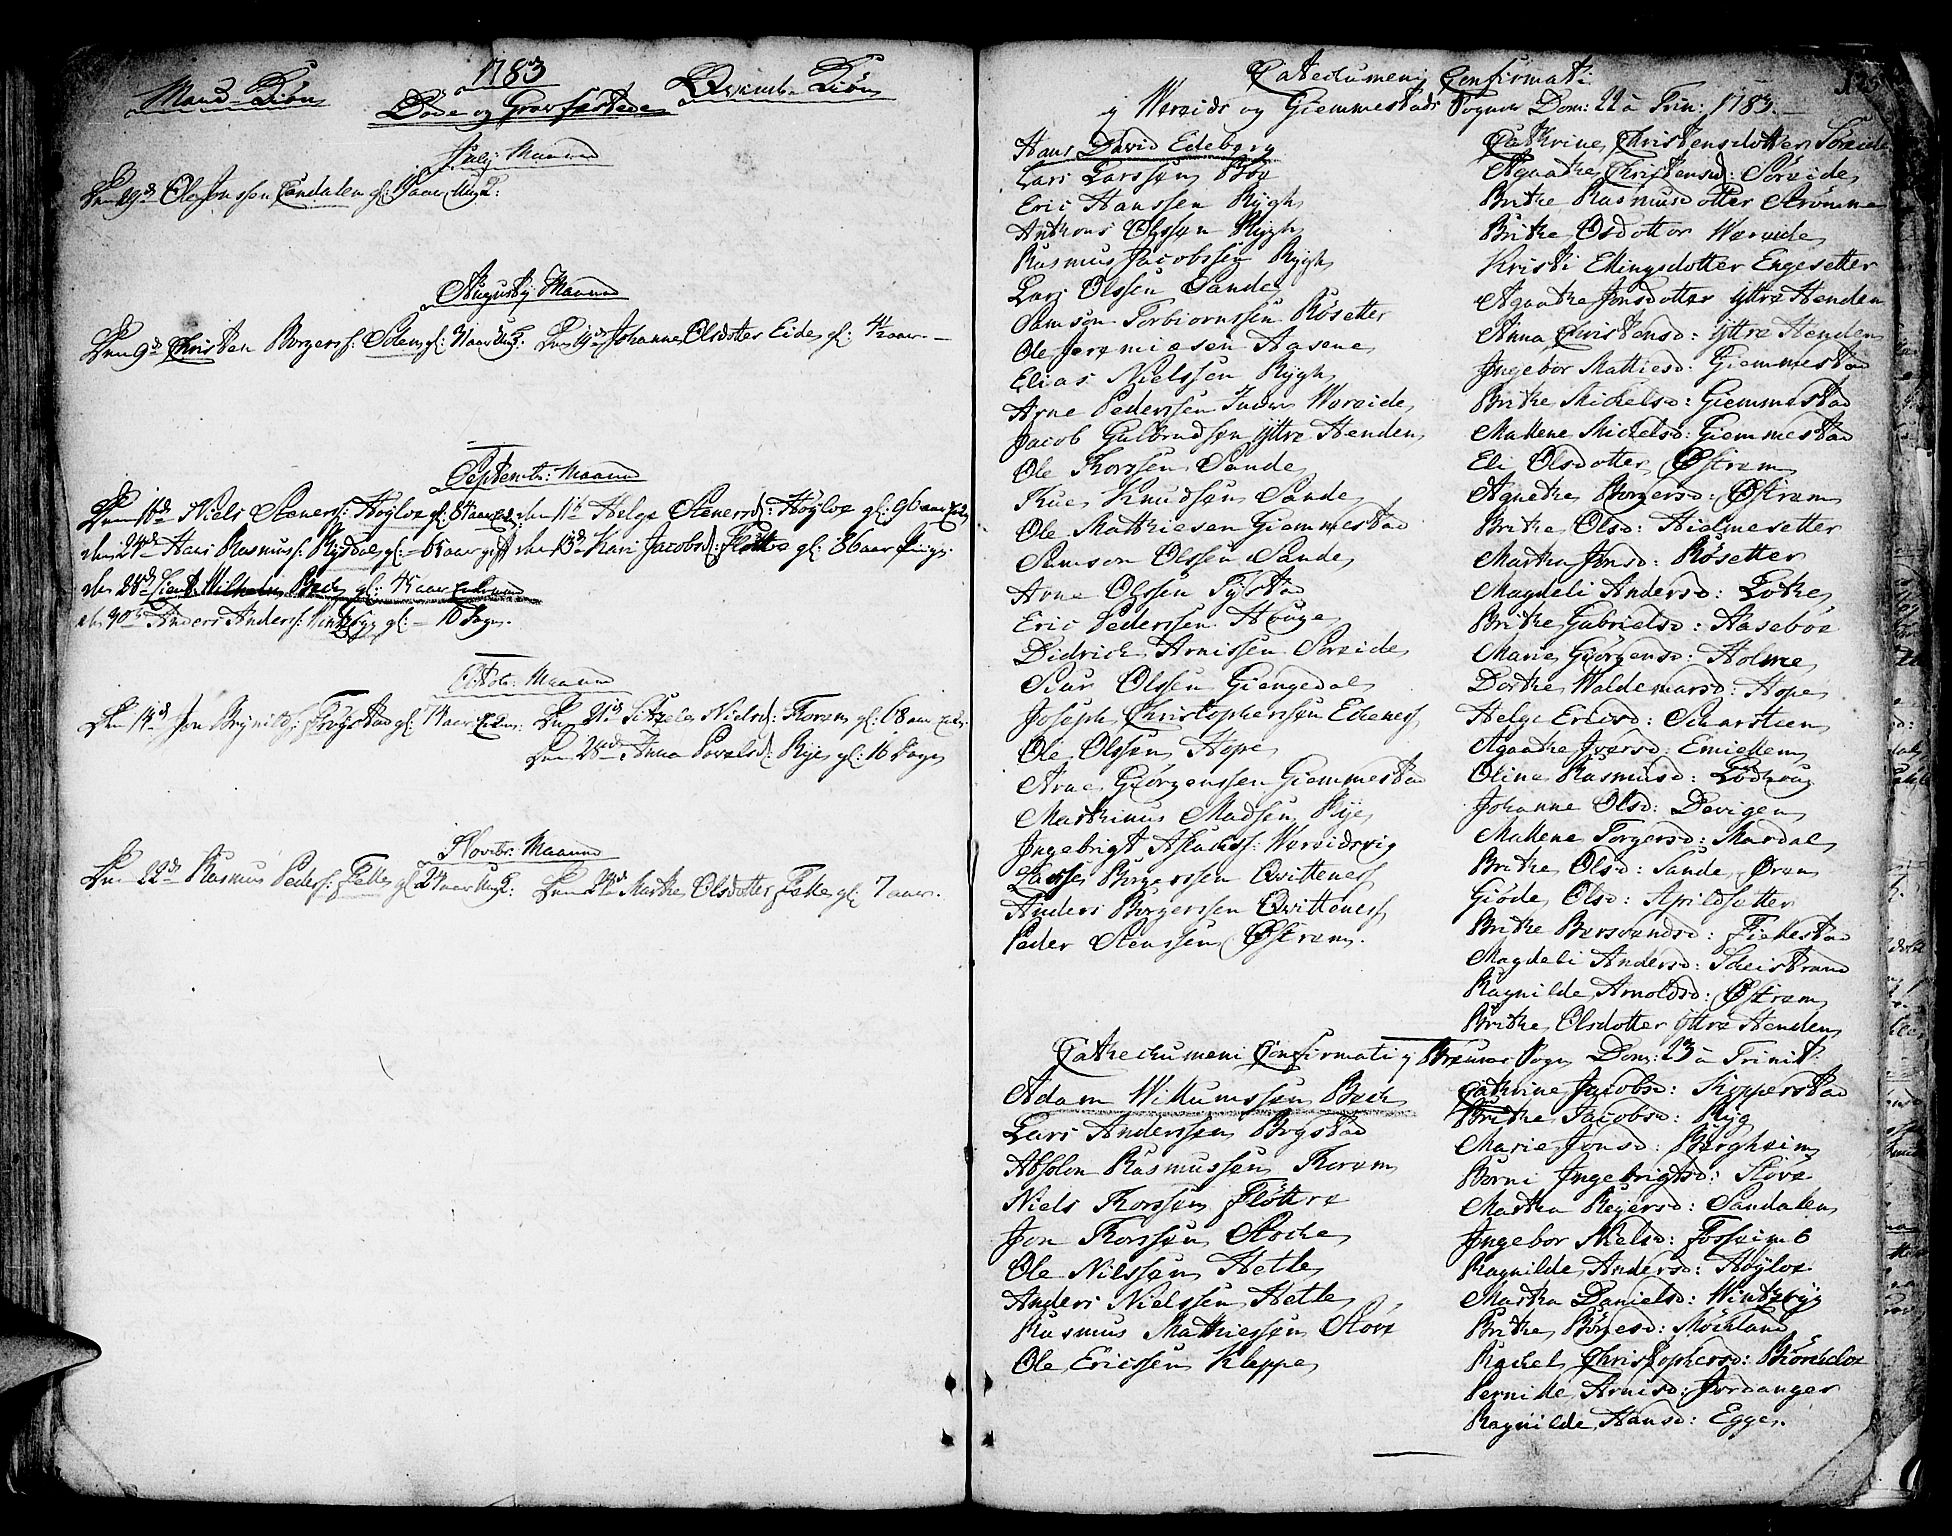 1783
Mand-Kiøn
Qvinde-Kiøn
Døde og Gravfæstede
July Maaned
Den 29de Ole Jensen Sandalen gl: aar
Augusty Maaned
Den 9de Christen Borgers: gl: aar Den Johanne Olsdotter Eide gl: 4 aar
Septembr: Maaned
Den 16de Niels Steners: Høyloe gl: 84 aar den 11te Helge Stenersd: Høyloe gl: 96 aar
den 24de Hans Rasmuss: Rygdal gl: 65 aar den 13de Kari Jacobsd: Fløttre gl: 86 aar
den 28de Lieut: Wilhelm Bech gl: 45 aar
den 30te Anders Anders: gl: 10 Dage.
Octobr: Maaned
Den 14de Jon gl: 74 aar Den 21de Sitzele Nielsd: Florem gl: 68 aar
Den 28de Anna Povelsd: Rye gl: 16 Dage
Novbr: Maaned
Den 22de Rasmus Peders: Fette gl: 24 aar Den Marthe Olsdotter Fette gl: 7 aar.
Catechumeni Confirmati
i Wereids og Giemmestads Sogner Dom: 22 à Trin: 1783.
Hans David Edeberg
Lars Larssen Böe
Eric Hanssen Rygh
Anthons Olssen Rygh
Rasmus Jacobssen Rygh
Lars Olssen Sande
Samson Torbiornssen Rösetter
Ole Jeremiesen Aasene
Elias Nielssen Rygh
Arne Pederssen Indre Wereide
Jacob Gulbrandsen Yttre Henden
Ole Thorssen Sande
Thue Knudsøn Sande
Ole Mathiesen Giemmestad
Samson Olssen Sande
Arne Olssen Tystad
Eric Pederssen Houge
Didrich Arnissen Sereide
Siur Olssen Giengedal
Joseph Christopherssen Edenes
Ole Olssen Hope
Arne Giørgenssen Giemmestad
Mathinus Madsen Rye
Ingebrigt Aslachs: Wereidsvig
Lasse Borgerssen Qvittenes
Anders Borgerssen Qvittenes
Peder Stenssen Østrem.
Cathrine Christensdotter Söreide
Agaathe Christensd: Sereide
Brithe Rasmusdotter Strömme
Brithe Osdotter Wereide
Kristi Ellingsdotter Engesetter
Agaathe Jonsdotter Yttre Henden
Anna Christensd: Yttre Henden
Ingebor Mathiesd: Giemmestad
Brithe Michelsd: Giemmestad
Mallene Michelsd: Giemmestad
Eli Olsdotter Østrem
Agnethe Borgersd: Østrem
Brithe Olsd: Hielmesetter
Martha Jonsd: Rösetter
Magdeli Andersd: Lothe
Brithe Gabrielsd: Aaseböe
Marie Giörgensd: Holme
Dorthe Waldemarsd: Hope
Helge Ericsd: Scharsteen
Agaathe Iversd: Emiellem
Oline Rasmusd: Lothoug
Johanne Olsd: Devigen
Mallene Torgersd: Mardal
Brithe Olsd: Sande Øren
Giöde Olsd: Apildsetter
Brithe Borsvendsd: Fiellestad
Magdeli Andersd: Skeistrand
Ragnilde Arnoldsd: Østrem
Brithe Olsdotter Yttre Henden
Cathechumeni Confirmati i Bremmer Sogn Dom: 23 à Trinit:
Adam Willumssen Bech
Lars Anderssen Brystad
Absolon Rasmussen Florem
Niels Thorssen Fløttre
Jon Thorssen Stoche
Ole Nilssen Hetle
Anders Nielssen Hetle
Rasmus Mathiessen Störe
Ole Ericssen Kleppe
Cathrine Jacobsd: Kopperstad
Brithe Jacobsd: Ryg
Marie Jonsd: Bergheim
Borni Ingebrigtsd: Störe
Martha Reyersd: Sandalen
Ingebor Nielsd: Fossheim
Ragnilde Andersd: Høyloe
Martha Danielsd:
Brithe Börgesd: Mökland
Rachel Christophersd:
Pernille Arnisd: Jordanger
Ragnilde Hansd: Egge.